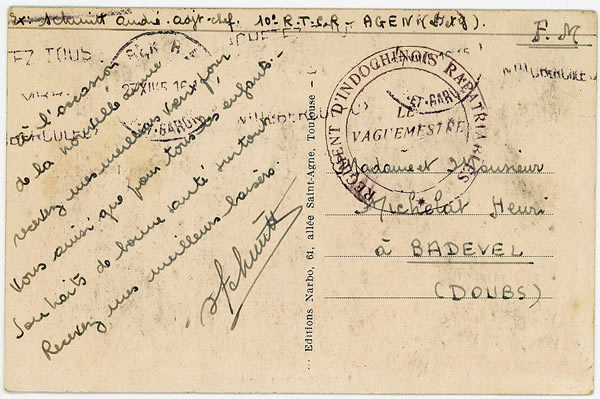 Ex. Schmitt André adjt-chef 10e R.T.C.R - AGEN (L.&G).
F.M
HETEZ TOUS
AGEN R.P
27 XII 45 16
ET-GARONNE
A l'occasion
de la nouvelle année
recevez mes meilleurs vœux pour
vous ainsi que pour tous les enfants.-
Souhaits de bonne santé surtout.
Recevez mes meilleurs baisers.
Schmitt
Editions Narbo, 61, allée Saint-Agne, Toulouse -
REGIMENT D'INDOCHINOIS RAPATRIABLES
LE
VAGUEMESTRE
ET-GARO
Madame et Monsieur
Micholat Henri
à BADEVEL
(DOUBS)